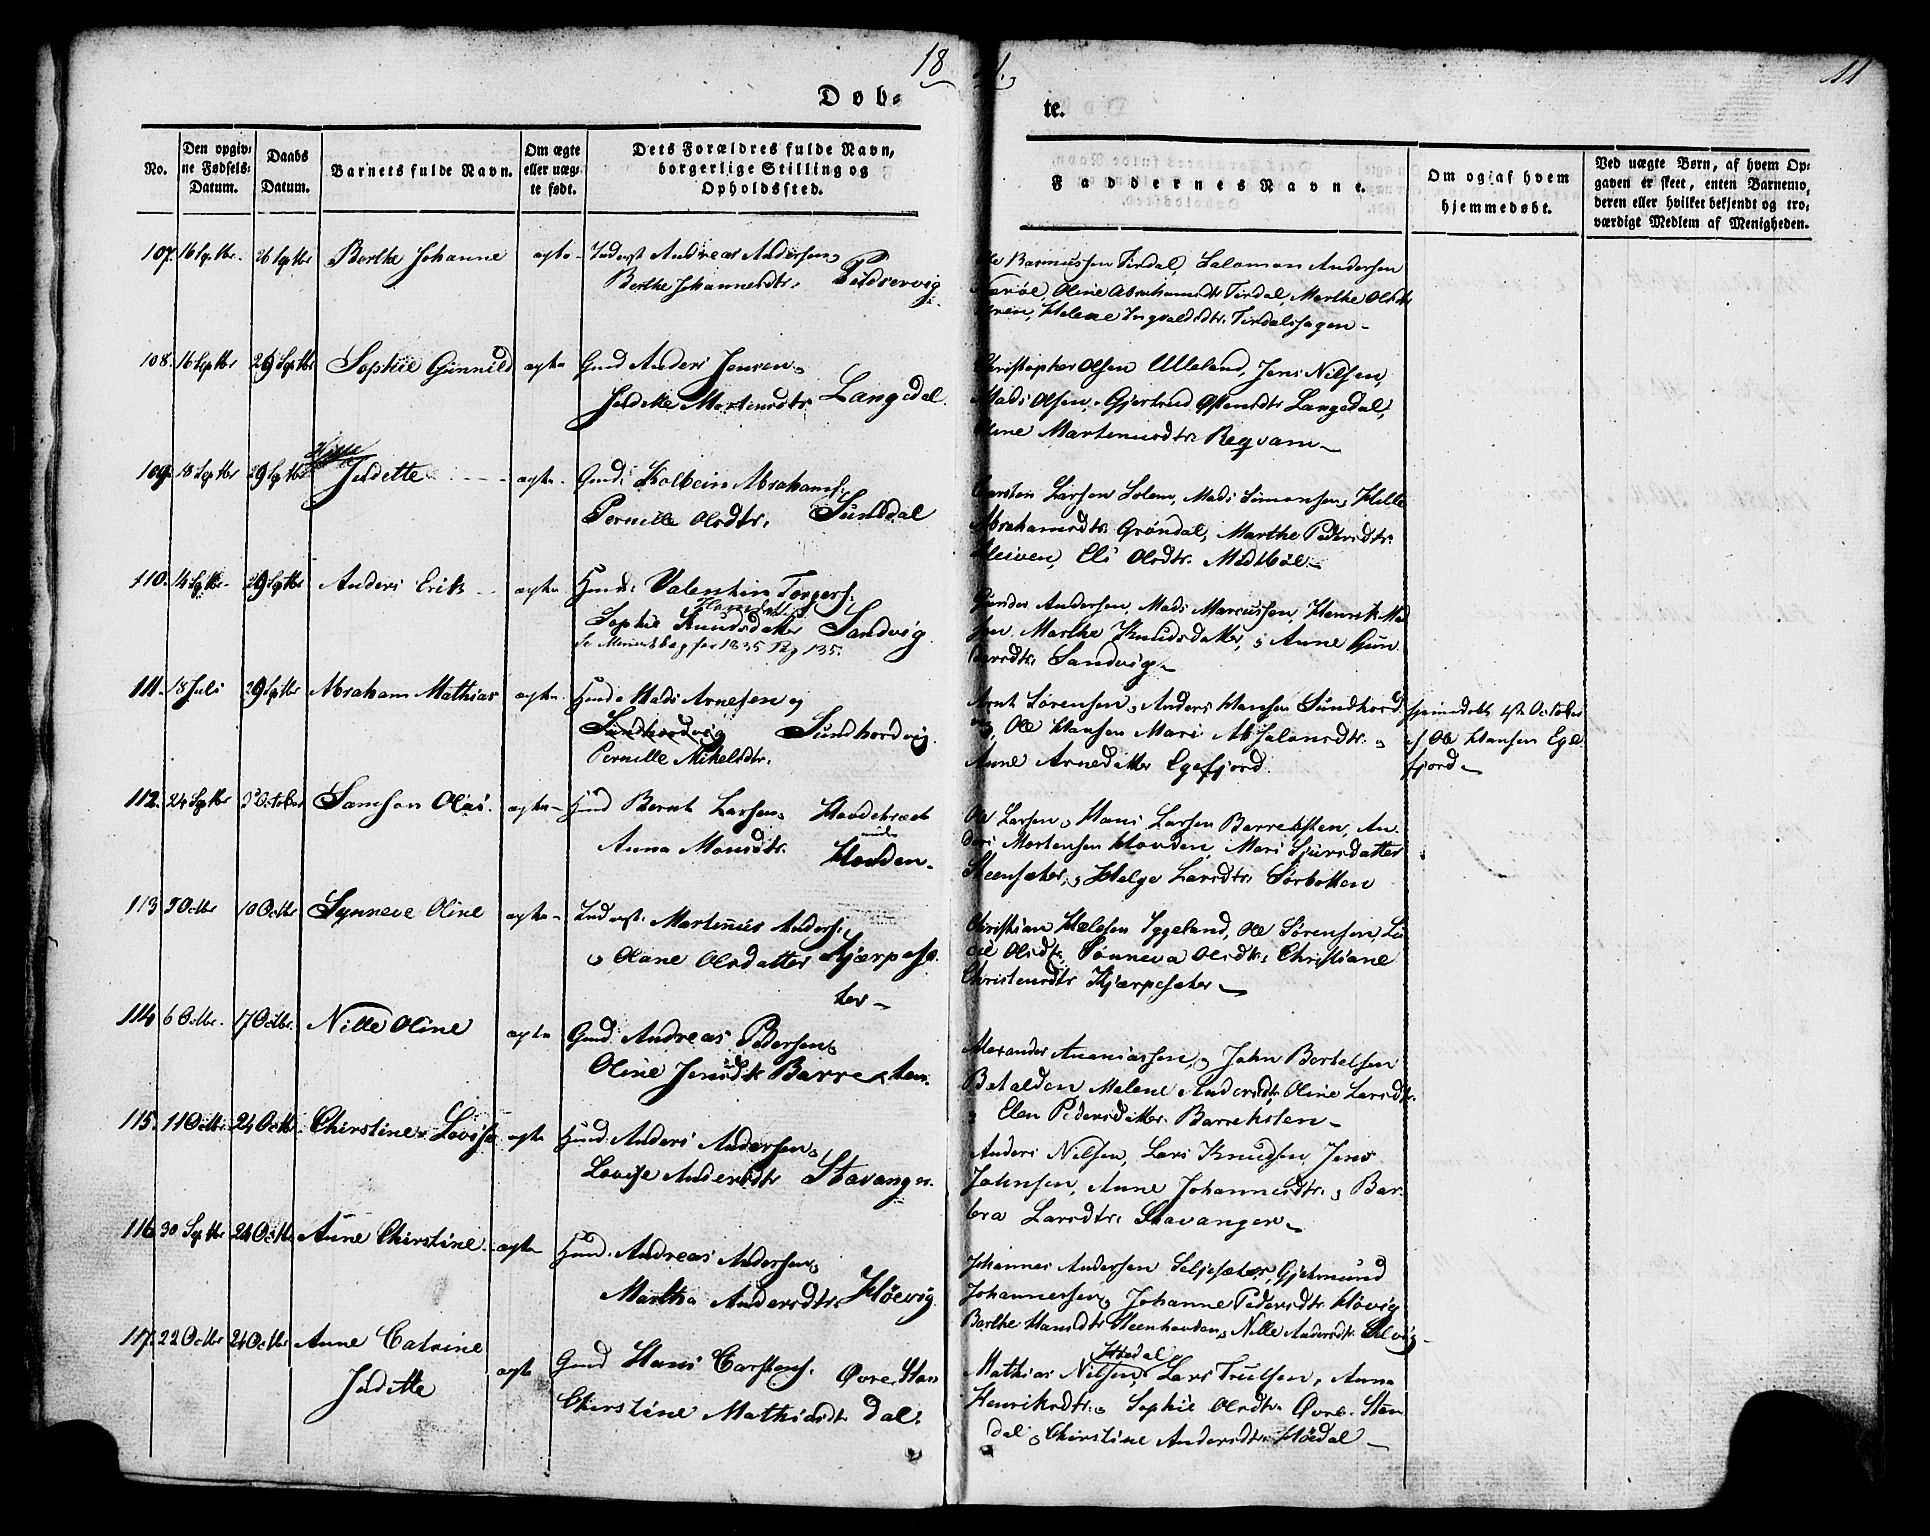 18
11
Døb-
te.
No.
Den opgiv-
ne Fødsels-
Datum.
Daabs
Datum.
Barnets fulde Navn.
Om ægte
eller uæg-
te født.
Dets Forældres fulde Navn,
borgerlige Stilling og
Opholdssted.
Faddernes Navne.
Om og af hvem
hjemmedøbt.
Ved uægte Børn, af hvem Op-
gaven er skeet, enten Barnemo-
deren eller hvilket bekjendt og tro-
værdigt Medlem af Menigheden.
107. 16 Septbr. 26 Septbr Berthe Johanne ægte Inderst Andreas Andersen
Berthe Johannesdtr. Pildrevvig
Ole Rasmussen Tirdal, Salomon Andersen
Oline Abrahamsdtr Tirdal, Marthe Olsdtr
Helene Ingvaldsdtr. Tirdalshagen
108. 16 Septbr 29 Septbr Sophie Günnild ægte Gmd Anders Jensen
Judithe Mortensdtr Langedal
Christopher Olsen Ulleland, Jens Nilsen,
Mads Olsen, Gjertrud Langedal,
Oline Martinusdtr. Reqvam
109. 18 Septbr 29 Septbr Judette ægte Gmd. Kolbein Abrahams.
Pernille Olsdtr. Sunddal
Carsten Larsen Solem, Mads Simonsen, Hille
Abrahamsdtr Grøndal, Marthe Pedersdtr.
Kleiven, Eli Olsdtr. Midtbøe
110. 14 Septbr 29 Septbr Anders Erik ægte Huusmd. Valentin Torgers.
Sophie Knudsdatter Sandvig
Se Ministbog for 1835 Pag 135.
Gunder Andersen, Mads Marcussen, Henrik Mad
sen, Marthe Knudsdatter, Anne Gun
dersdtr. Sandvig
111. 18 Juli 29 Septbr Abraham Mathias ægte Huusmd Mads Arnesen og
Sundhordvig Sundhordvig
Pernille Mikelsdtr.
Arnt Sørensen, Anders Hansen Sundhord
vig, Ole Hansen Mari Absalonsdtr.
Anne Arnedatter Egefjord.
hjemmedøbt 1st October
af Ole Hansen Ege
fjord
112. 24 Septbr 3 October Samson Olai. ægte Huusmd Bernt Larsen
Anna Monsdtr. Hovden
Ole Larsen, Hans Larsen Barreksten, An
ders Mortensen Hovden, Mari Sjursdatter
Steensæter, Helge Larsdtr Sørbotten
113 5 Octbr 10 Octbr Synneve Oline ægte Inderst Martinus Anders.
Olane Olsdatter Kjærpesæ
ter
Christian Helgesen Yggeland, Ole Sørensen, Lu
cie Olsdtr, Sønneva Olsdtr. Christiane
Christensdtr Kjærpesæter
114 6 Octbr. 17 Octbr. Nille Oline ægte Gmd. Andreas Pedersen
Oline Jensdtr Barreksten.
Alexander Ananiassen, John Bertelsen
Batalden, Malene Andersdtr, Oline Larsdtr.
Elen Pedersdatter Barreksten
115. 11 Octbr 24 Octbr Christine Lovise ægte Huusmd. Anders Andersen,
Lovise Andersdtr Stavanger.
Anders Nilsen, Lars Knudsen, Jens
Johnsen, Anne Johannesdtr. Bar
bra Larsdtr. Stavanger
116 30 Septbr 24 Octbr Anne Christine ægte Huusmd. Andreas Andersen
Martha Andersdtr. Høevig
Johannes Andersen Seljesæter, Gjetmund
Johannessen, Johanne Pedersdtr. Høvig
Berthe Hansdtr Steenhovden, Nille Andersdtr. Selvig
117. 22 Octbr 24 Octbr Anne Catrine
Judithe ægte Gmd Hans Carstens. Øvre Stan
Christine Mathiasdtr dal.
Mathias Nilsen, Lars Trulsen, Anna
Henriksdtr. Sophie Olsdtr. Øvre Stan
dal, Christine Andersdtr. Høedal